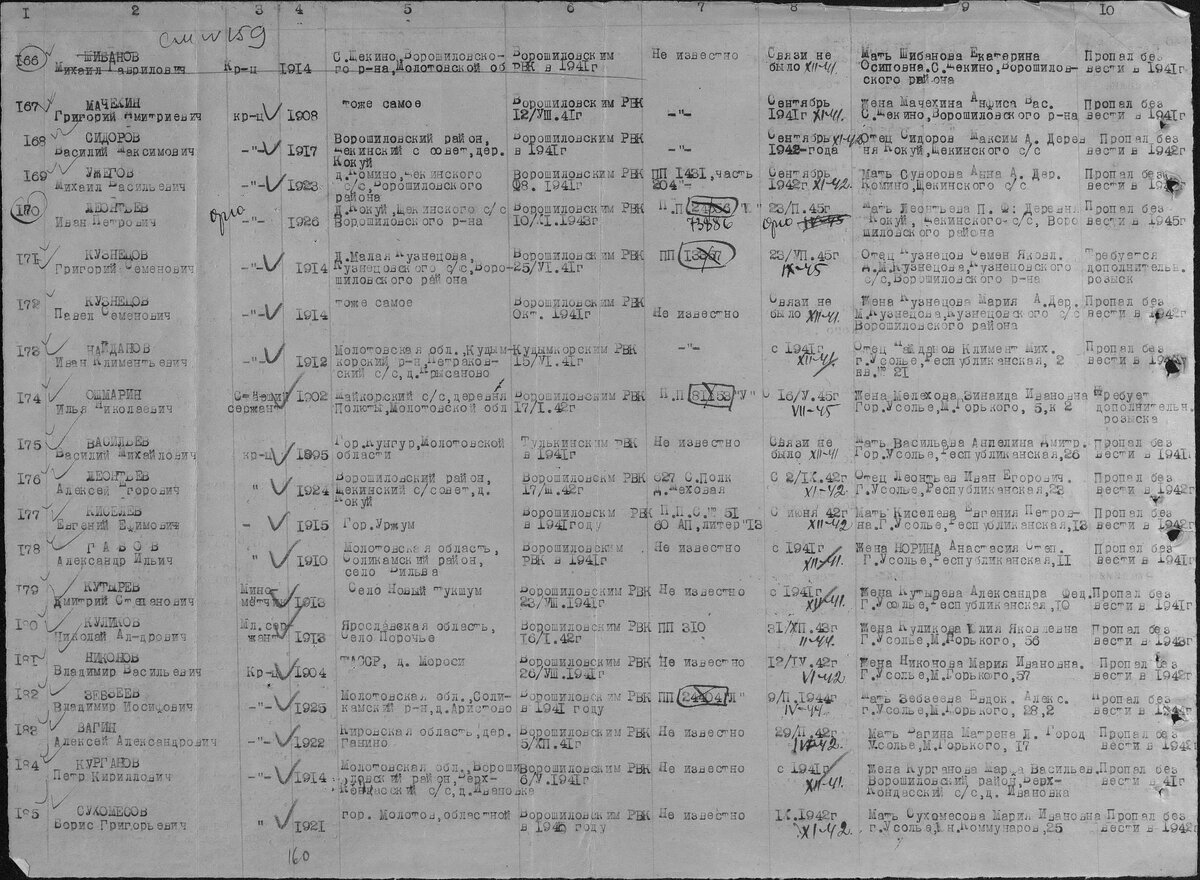 I 2 3 4 5 6 7 8 9 10
см №159
166 ШИБАНОВ Михаил Гаврилович Кр-ц 1914 С.Щекино,Ворошиловско-го р-на,Молотовской об Ворошиловским РВК в 1941г Не известно Связи не было XII-41. Мать Шибанова Екатерина Осиповна.С.Щекино,Ворошилов-ского района Пропал без вести в 1941г
167 МАЧЕХИН Григорий Дмитриевич кр-ц 1908 тоже самое Ворошиловским РВК 12/УШ.41г -"- Сентябрь 1941г XI-41. Жена Мачехина Анфиса Вас. С.Щекино,Ворошиловского р-на Пропал без вести в 1941г
168 СИДОРОВ Василий Максимович -"- 1917 Ворошиловский район, Щекинский с совет,дер. Кокуй Ворошиловским РВК в 1941г -"- Сентябрь 1942-года XI-42 Отец Сидоров Максим А. Дерев ня Кокуй,Щекинского с/с Пропал без вести в 1942г
169 УЖЕГОВ Михаил Васильевич -"- 1923 д.Комино,Щекинского с/с,Ворошиловского района Ворошиловским РВК Ф8. 1941г ПП 1431,часть 204"- Сентябрь 1942г XI-42. Мать Суворова Анна А. Дер. Комино,Щекинского с/с Пропал без вести в 1942г
170 ЛЕОНТЬЕВ Иван Петрович орло -"- 1926 Д.Кокуй,Щекинского с/с Ворошиловского р-на Ворошиловским РВК 10/XI.1943г П.П 73886 23/П.45г Мать Леонтьева П.Ф. Деревня Кокуй, Щекинского с/с, Воро шиловского района Пропал без вести в 1945г
171 КУЗНЕЦОВ Григорий Семенович -"- 1914 Д.Малая Кузнецова, Кузнецовского с/с,Воро-шиловского района Ворошиловским РВК 25/УI.41г ПП 23/УП.45г IX-45 Отец Кузнецов Семен Яковл. Д.М.Кузнецова,Кузнецовского с/с,Ворошиловского р-на Требуется дополнительн. розыск
172 КУЗНЕЦОВ Павел Семенович -"- 1914 тоже самое Ворошиловским РВК Окт. 1941г Не известно Связи не было XII-41. Жена Кузнецова Мария А.Дер. М.Кузнецова,Кузнецовского с/с Ворошиловского района Пропал без вести в 1942г
173 НАЙДАНОВ Иван Климентьевич -"- 1912 Молотовская обл.,Кудым-корский р-н,Петраков-ский с/с,д.Крысаново Кудымкорским РВК 15/УI.41г -"- с 1941г XII-41 Отец Найданов Климент Мих. г.Усолье,Республиканская, 2 кв.№ 21 Пропал без вести в
174 ОШМАРИН Илья Николаевич Старший сержант 1902 Майкорский с/с,деревня Полюты,Молотовской обл Ворошиловским РВК 17/I.42г П.П "У" С 16/У.45г VII-45 Жена Мелехова Зинаида Ивановна Гор.Усолье,М.Горького, 5,к 2 Требует дополнительн. розыска
175 ВАСИЛЬЕВ Василий Михайлович кр-ц 1895 Гор.Кунгур,Молотовской области Тулькинским РВК в 1941г Не известно Связи не было XII-41 Мать Васильева Ангелина Дмитр. Гор.Усолье,Республиканская,26 Пропал без вести в 1941г
176 ЛЕОНТЬЕВ Алексей Егорович " 1924 Ворошиловский район, Щекинский с/совет,д. Кокуй Ворошиловскм РВК 17/Ш.42г 627 С.Полк д.Меховая С 2/IX.42г XI-42. Отец Леонтьев Иван Егорович. Г.Усолье,Республиканская,23 Пропал без вести в 1942г
177 КИСЕЛЕВ Евгений Ефимович - 1915 Гор.Уржум Ворошиловскм РВК в 1941году П.П.С.№ 51 60 АП,литер"13 С июня 42г XII-42 Мать Киселева Евгения Петров-на.Г.Усолье,Республиканская,13 Пропал без вести в 1942г
178 ГАБОВ Александр Ильич " 1910 Молотовская область, Соликамский район, село Вильва Ворошиловскм РВК в 1941г Не известно с 1941г XII-41 Жена НОРИНА Анастасия Степ. Г.Усолье,Республиканская,11 Пропал без вести в 1941г
179 КУТЫРЕВ Дмитрий Степанович Мино метчик 1913 Село Новый Тукшум Ворошиловским РВК 23/УШ.1941г Не известно с 1941г XII-41. Жена Кутырева Александра Фед. Г.Усолье,Республиканская,10 Пропал без вести в 1941г
180 КУЛИКОВ Николай Ал-дрович Мл.сер-жант 1913 Ярославская область, Село Поречье Ворошиловским РВК 16/I.42г ПП 310 31/ХП.43г II-44. Жена Куликова Юлия Яковлевна Г.Усолье,М.Горького, 56 Пропал без вести в 1943г
181 НИКОНОВ Владимир Васильевич Кр-ц 1904 ТАССР, д. Мороси Ворошиловским РВК 26/УШ.1941г Не известно 12/IУ.42г VI-42 Жена Никонова Мария Ивановна. Г.Усолье,М.Горького,57 Пропал без вести в 1942г
182 ЗЕБЗЕЕВ Владимир Иосифович -"- 1925 Молотовская обл.,Соли-камский р-н,д.Аристово Ворошиловским РВК в 1941 году ПП 24404 "Л" 9/П.1944г IV-44. Мать Зебзеева Евдок. Алекс. г.Усолье,М.Горького, 28,2 Пропал без вести в 1944г
183 ВАГИН Алексей Александрович -"- 1922 Кировская область,дер. Ганино Ворошиловским РВК 5/ХП.41г Не известно 29/П.42г IV-42. Мать Вагина Матрена Л. Город Усолье,М.Горького, 17 Пропал без вести в 1942г
184 КУРГАНОВ Петр Кириллович -"- 1914 Молотовская обл.,Вороши ловский район,Верх-Кондасский с/с,д.Ивановка Ворошиловским РВК 6/У.1941г Не известно с 1941г XII-41. Жена Курганова Марфа Васильев. Ворошиловский район,Верх-Кондасский с/с,д. Ивановка Пропал без вести в 41г
185 СУХОМЕСОВ Борис Григорьевич " 1921 гор. Молотов,областной Ворошиловским РВК в 1940 году Не известно IX.1942г XI-42. Мать Сухомесова Мария Ивановна г.Усолье,Ын.Коммунаров,25 Пропал без вести в 1942г
160